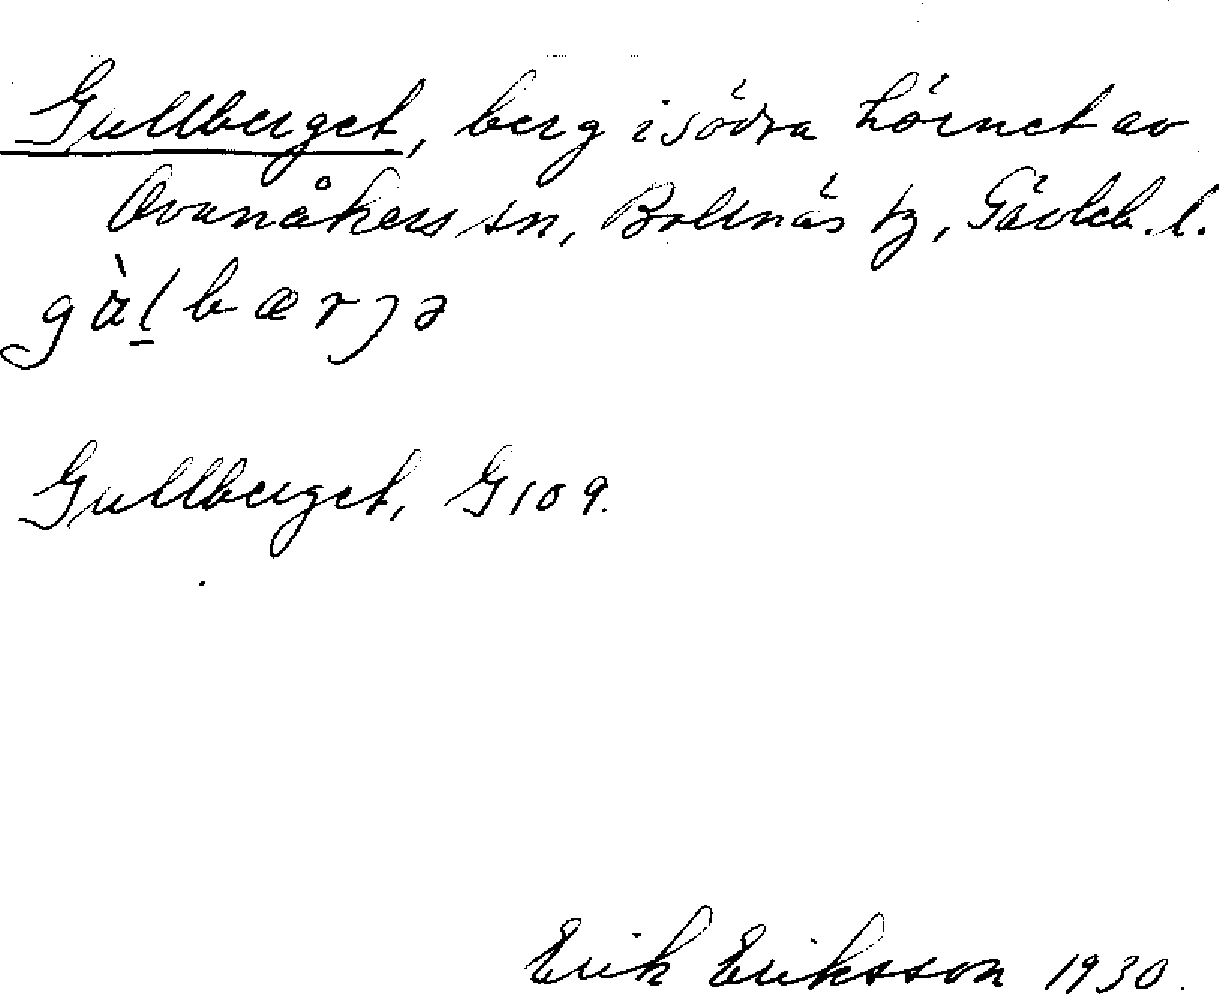 Gullberget, berg i södra hörnet av
Ovanåkers sn, Bollnäs tg, Gävleb. l.
gàḻbærȷə
Gullberget, G109.
Erik Eriksson 1930.